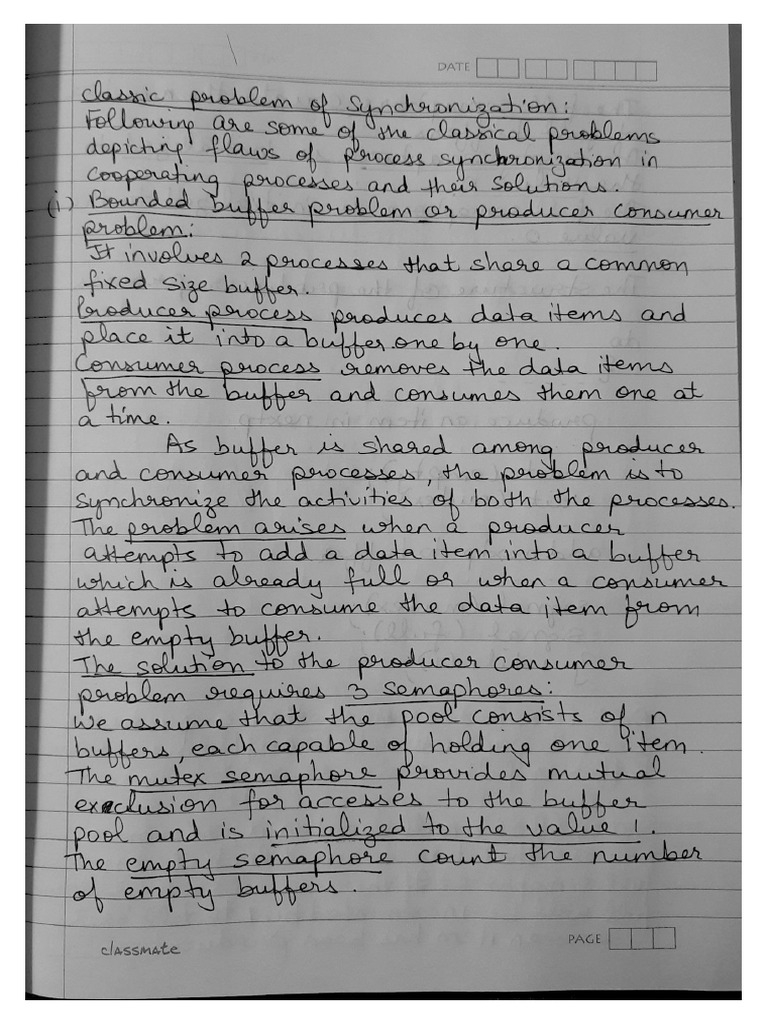 DATE
Classic problem of Synchronization:
Following are some of the classical problems
depicting flaws of process synchronization in
cooperating processes and their solutions.
(i) Bounded buffer problem or producer consumer
problem:
It involves 2 processes that share a common
fixed size buffer.
Producer process produces data items and
place it into a buffer one by one.
Consumer process removes the data items
from the buffer and consumes them one at
a time.
As buffer is shared among producer
and consumer processes, the problem is to
synchronize the activities of both the processes.
The problem arises when a producer
attempts to add a data item into a buffer
which is already full or when a consumer
attempts to consume the data item from
the empty buffer.
The solution to the producer consumer
problem requires 3 semaphores:
We assume that the pool consists of n
buffers, each capable of holding one item.
The mutex semaphore provides mutual
exclusion for accesses to the buffer
pool and is initialized to the value 1.
The empty semaphore count the number
of empty buffers.
classmate
PAGE